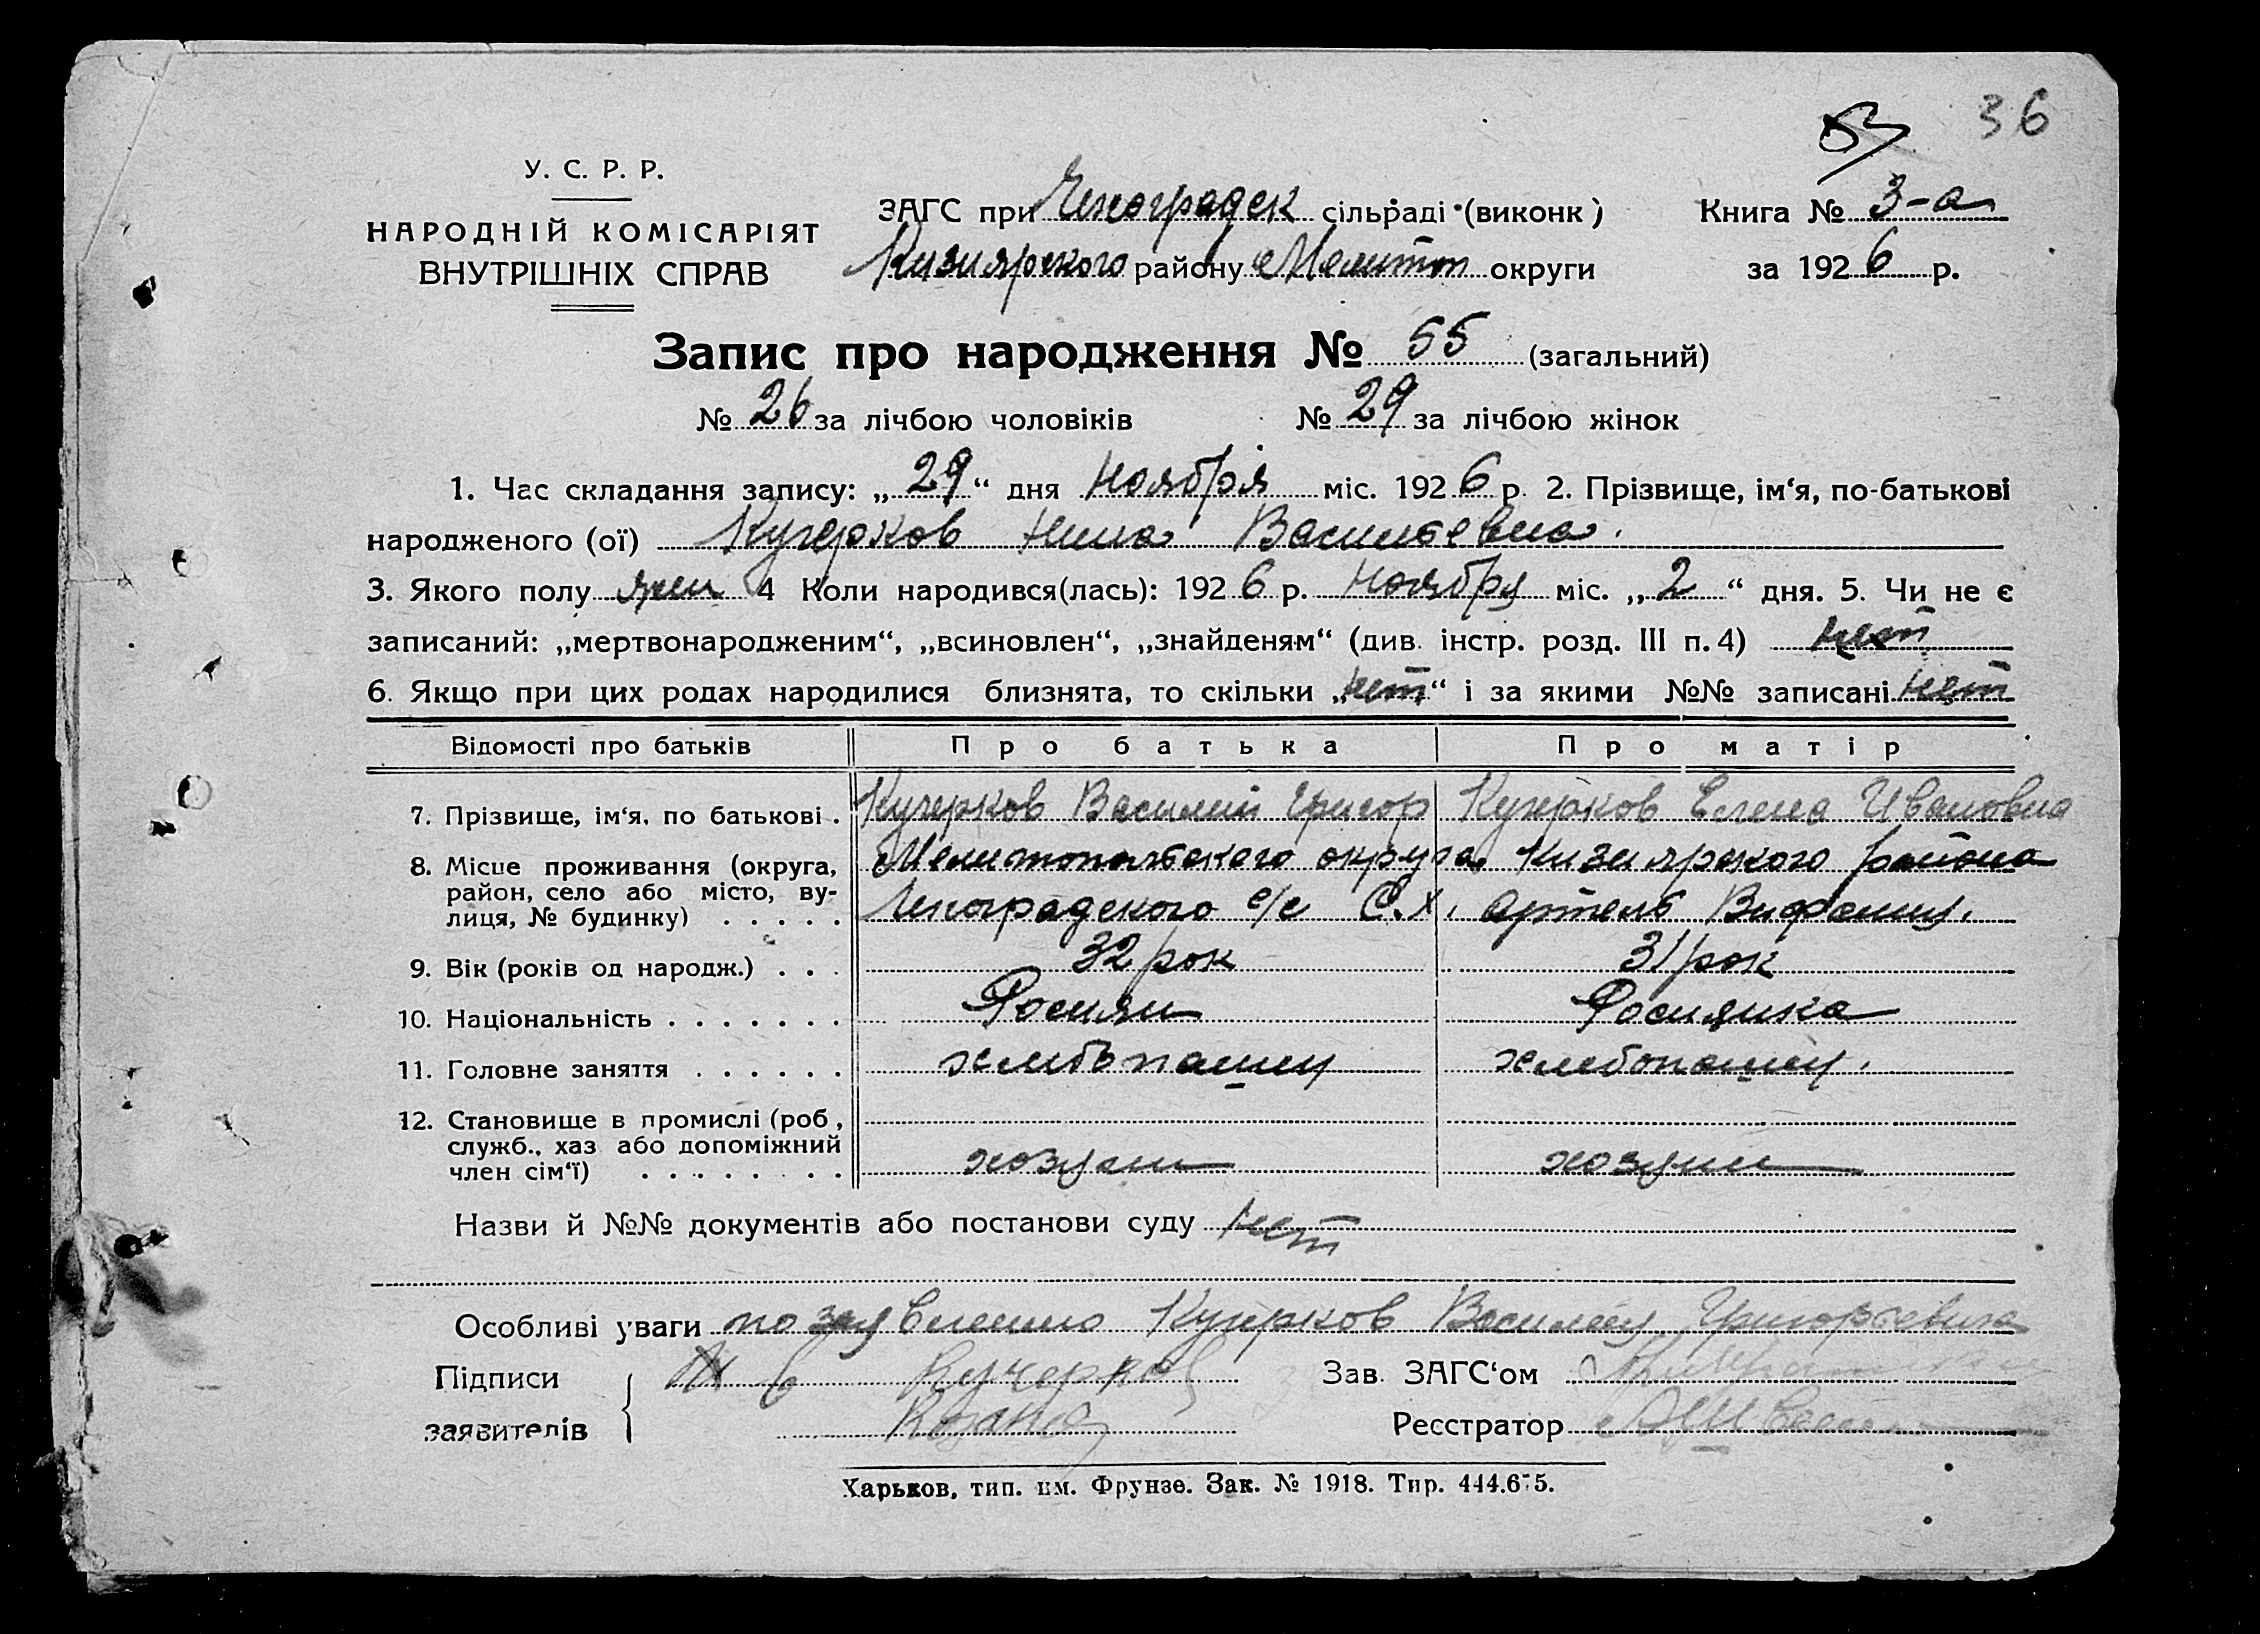 53 36
У. С. Р. Р.
НАРОДНІЙ КОМІСАРІЯТ
ВНУТРІШНІХ СПРАВ
ЗАГС при сільраді (виконк)
Кизиярского району Мелитоп округи
Книга № 3-а
за 1926 р.
Запис про народження № 55 (загальний)
№ 26 за лічбою чоловіків № 29 за лічбою жінок
1. Час складання запису: „29“ дня Ноября міс. 1926 р. 2. Прізвище, ім‘я, по-батькові
народженого (ої) Кучерков Нина Васильевна.
3. Якого полу жен 4 Коли народився(лась): 1926 р. Ноября міс. „2“ дня. 5. Чи не є
записаний: „мертвонародженим“, „всиновлен“, „знайденям“ (див. інстр. розд. III п. 4) нет
6. Якщо при цих родах народилися близнята, то скільки „нет“ і за якими №№ записані нет
Відомості про батьків Про батька Про матір
7. Прізвище, ім‘я, по батькові . Кучерков Василий Григор Кучерков Елена Ивановна
8. Місце проживання (округа, район, село або місто, вулиця, № будинку) . . . . . Мелитопольского округа Кизиярского района
с/с С.Х. артель
9. Вік (років од народж.) . . . 32 рок 31 рок
10. Національність . . . . . . . Росиян Росиянка
11. Головне заняття . . . . . . хлебопашец хлебопашец.
12. Становище в промислі (роб., служб., хаз. або допоміжний член сім‘ї) . . . . . . . . хозяин хозяин
Назви й №№ документів або постанови суду нет
Особливі уваги по заявлению Кучерков Василия Григорьевича
Підписи
заявителів
Кучерков
Зав. ЗАГС‘ом
Реєстратор
Харьков, тип. им. Фрунзе. Зак. № 1918. Тир. 444.675.